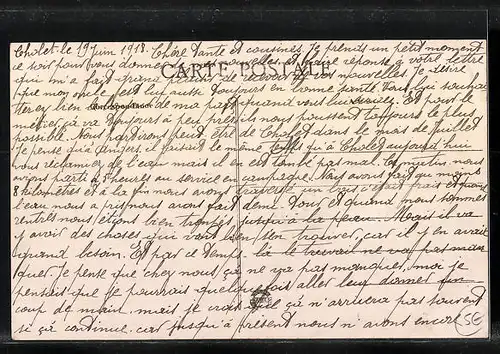 Cholet le 19 juin 1918. Chère tante et cousines. Je prends un petit moment
ce soir pour vous donner de mes nouvelles et faire réponse à votre lettre
CARTE POSTALE
qui m'a fait grand plaisir de recevoir de vos nouvelles. Je désire
que mon oncle soit lui aussi toujours en bonne santé. Vous lui souhai
Correspondance
terez bien le bonjour de ma part quand vous lui écrirez. Et pour le
métier, ça va toujours à peu près mais nous poussent toujours le plus
possible. Nous partirons peut être de Cholet dans le mois de juillet
Je pense qu'à Angers il faisait le même temps qu'à Cholet aujourd'hui
vous réclamiez de l'eau mais il en est tombé pas mal. Ce matin nous
avons parti à 5 heures au service en campagne. Nous avons fait au moins
8 kilomètres et à la fin nous avons traversé un bois c'était frais et puis
l'eau nous a pris nous avons fait demi-tour et quand nous sommes
rentrés nous étions bien trempés jusqu'à la peau. Mais il va
y avoir des choses qui vont bien s'en trouver, car il y en avait
grand besoin. Et par ce temps là le travail ne va pas man
quer. Je pense que chez nous ça ne va pas manquer, moi je
pensais que je pourrais quelquefois aller leur donner un
coup de main, mais je crois que ça n'arrivera pas souvent
si ça continue, car jusqu'à présent nous n'avons encore
5E